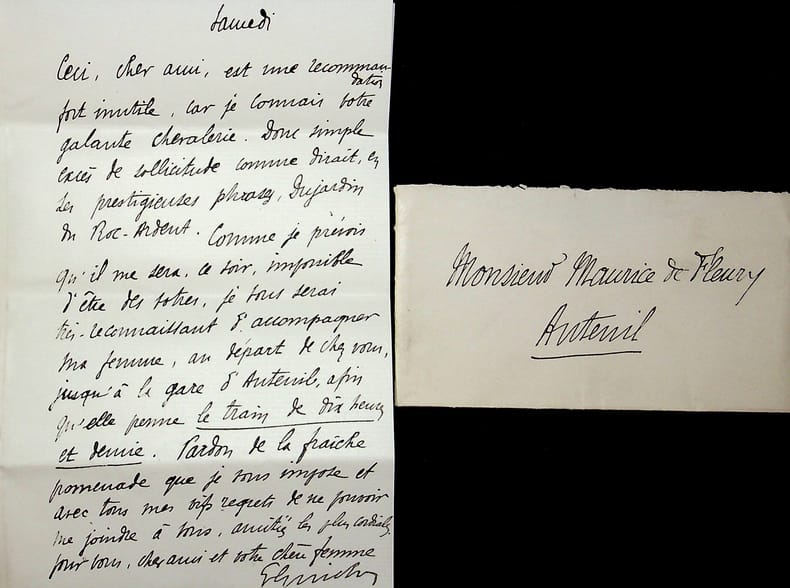 Samedi
Ceci, cher ami, est une recomman-
dation
fort inutile, car je connais votre
galante chevalerie. Donc simple
excès de sollicitude comme dirait, en
ses prestigieuses phrases, Dujardin
du Roc-Ardent. Comme je prévois
qu'il me sera, ce soir, impossible
d'être des votres, je vous serai
très-reconnaissant d'accompagner
ma femme, au départ de chez vous,
jusqu'à la gare d'Auteuil, afin
qu'elle prenne le train de dix heures
et demie. Pardon de la fraîche
promenade que je vous impose et
avec tous mes vifs regrets de ne pouvoir
me joindre à vous, amitiés les plus cordiales
pour vous, cher ami et votre chère femme
Monsieur Maurice de Fleury
Auteuil